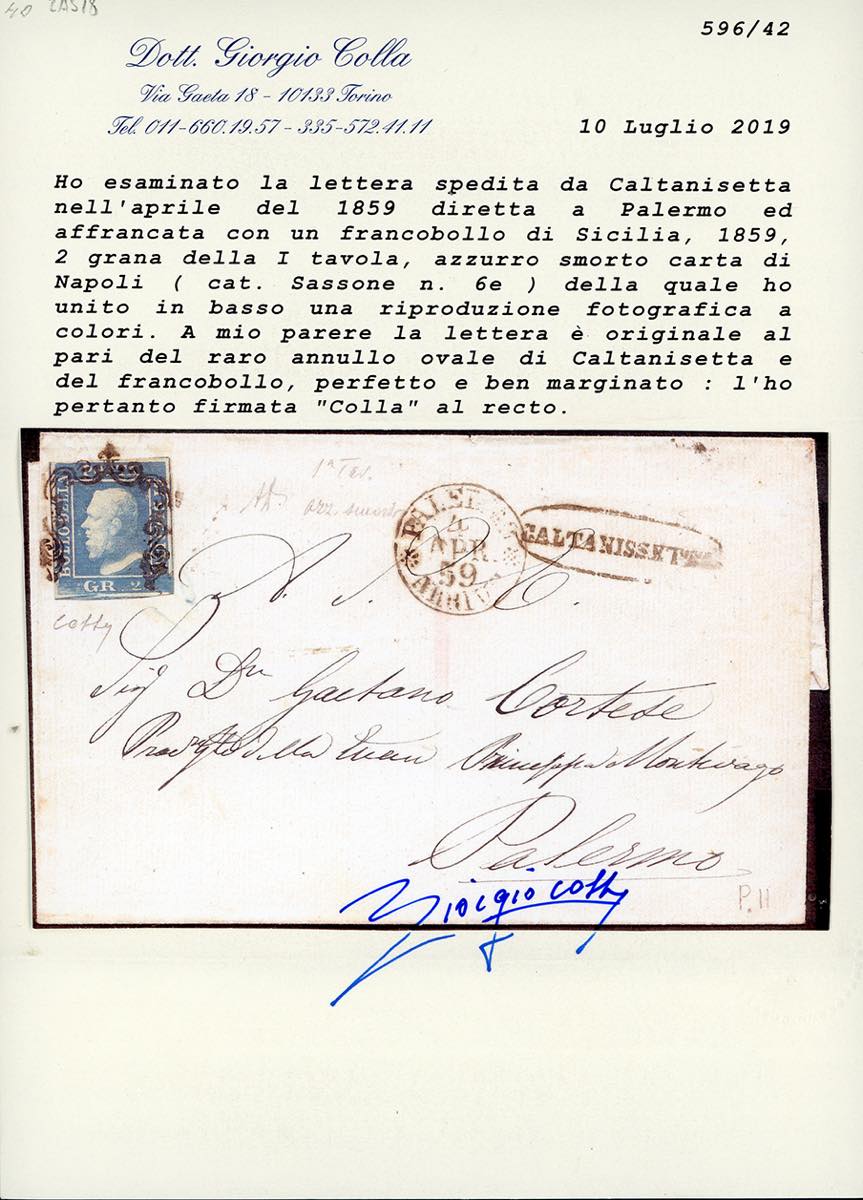 40
596/42
Dott. Giorgio Colla
Via Gaeta 18 - 10133 Torino
Tel. 011-660.19.57 - 335-572.41.11
10 Luglio 2019
Ho esaminato la lettera spedita da Caltanisetta
nell'aprile del 1859 diretta a Palermo ed
affrancata con un francobollo di Sicilia, 1859,
2 grana della I tavola, azzurro smorto carta di
Napoli ( cat. Sassone n. 6e ) della quale ho
unito in basso una riproduzione fotografica a
colori. A mio parere la lettera è originale al
pari del raro annullo ovale di Caltanisetta e
del francobollo, perfetto e ben marginato : l'ho
pertanto firmata "Colla" al recto.
GR. 2
1ª Tav.
azz. smorto
PALERMO
4
APR.
59
ARRIVO
CALTANISSETTA
Colla
A. S. E.
Sig. Dn Gaetano Cortese
della Principessa Montevago
Palermo
Giorgio Colla
P. II